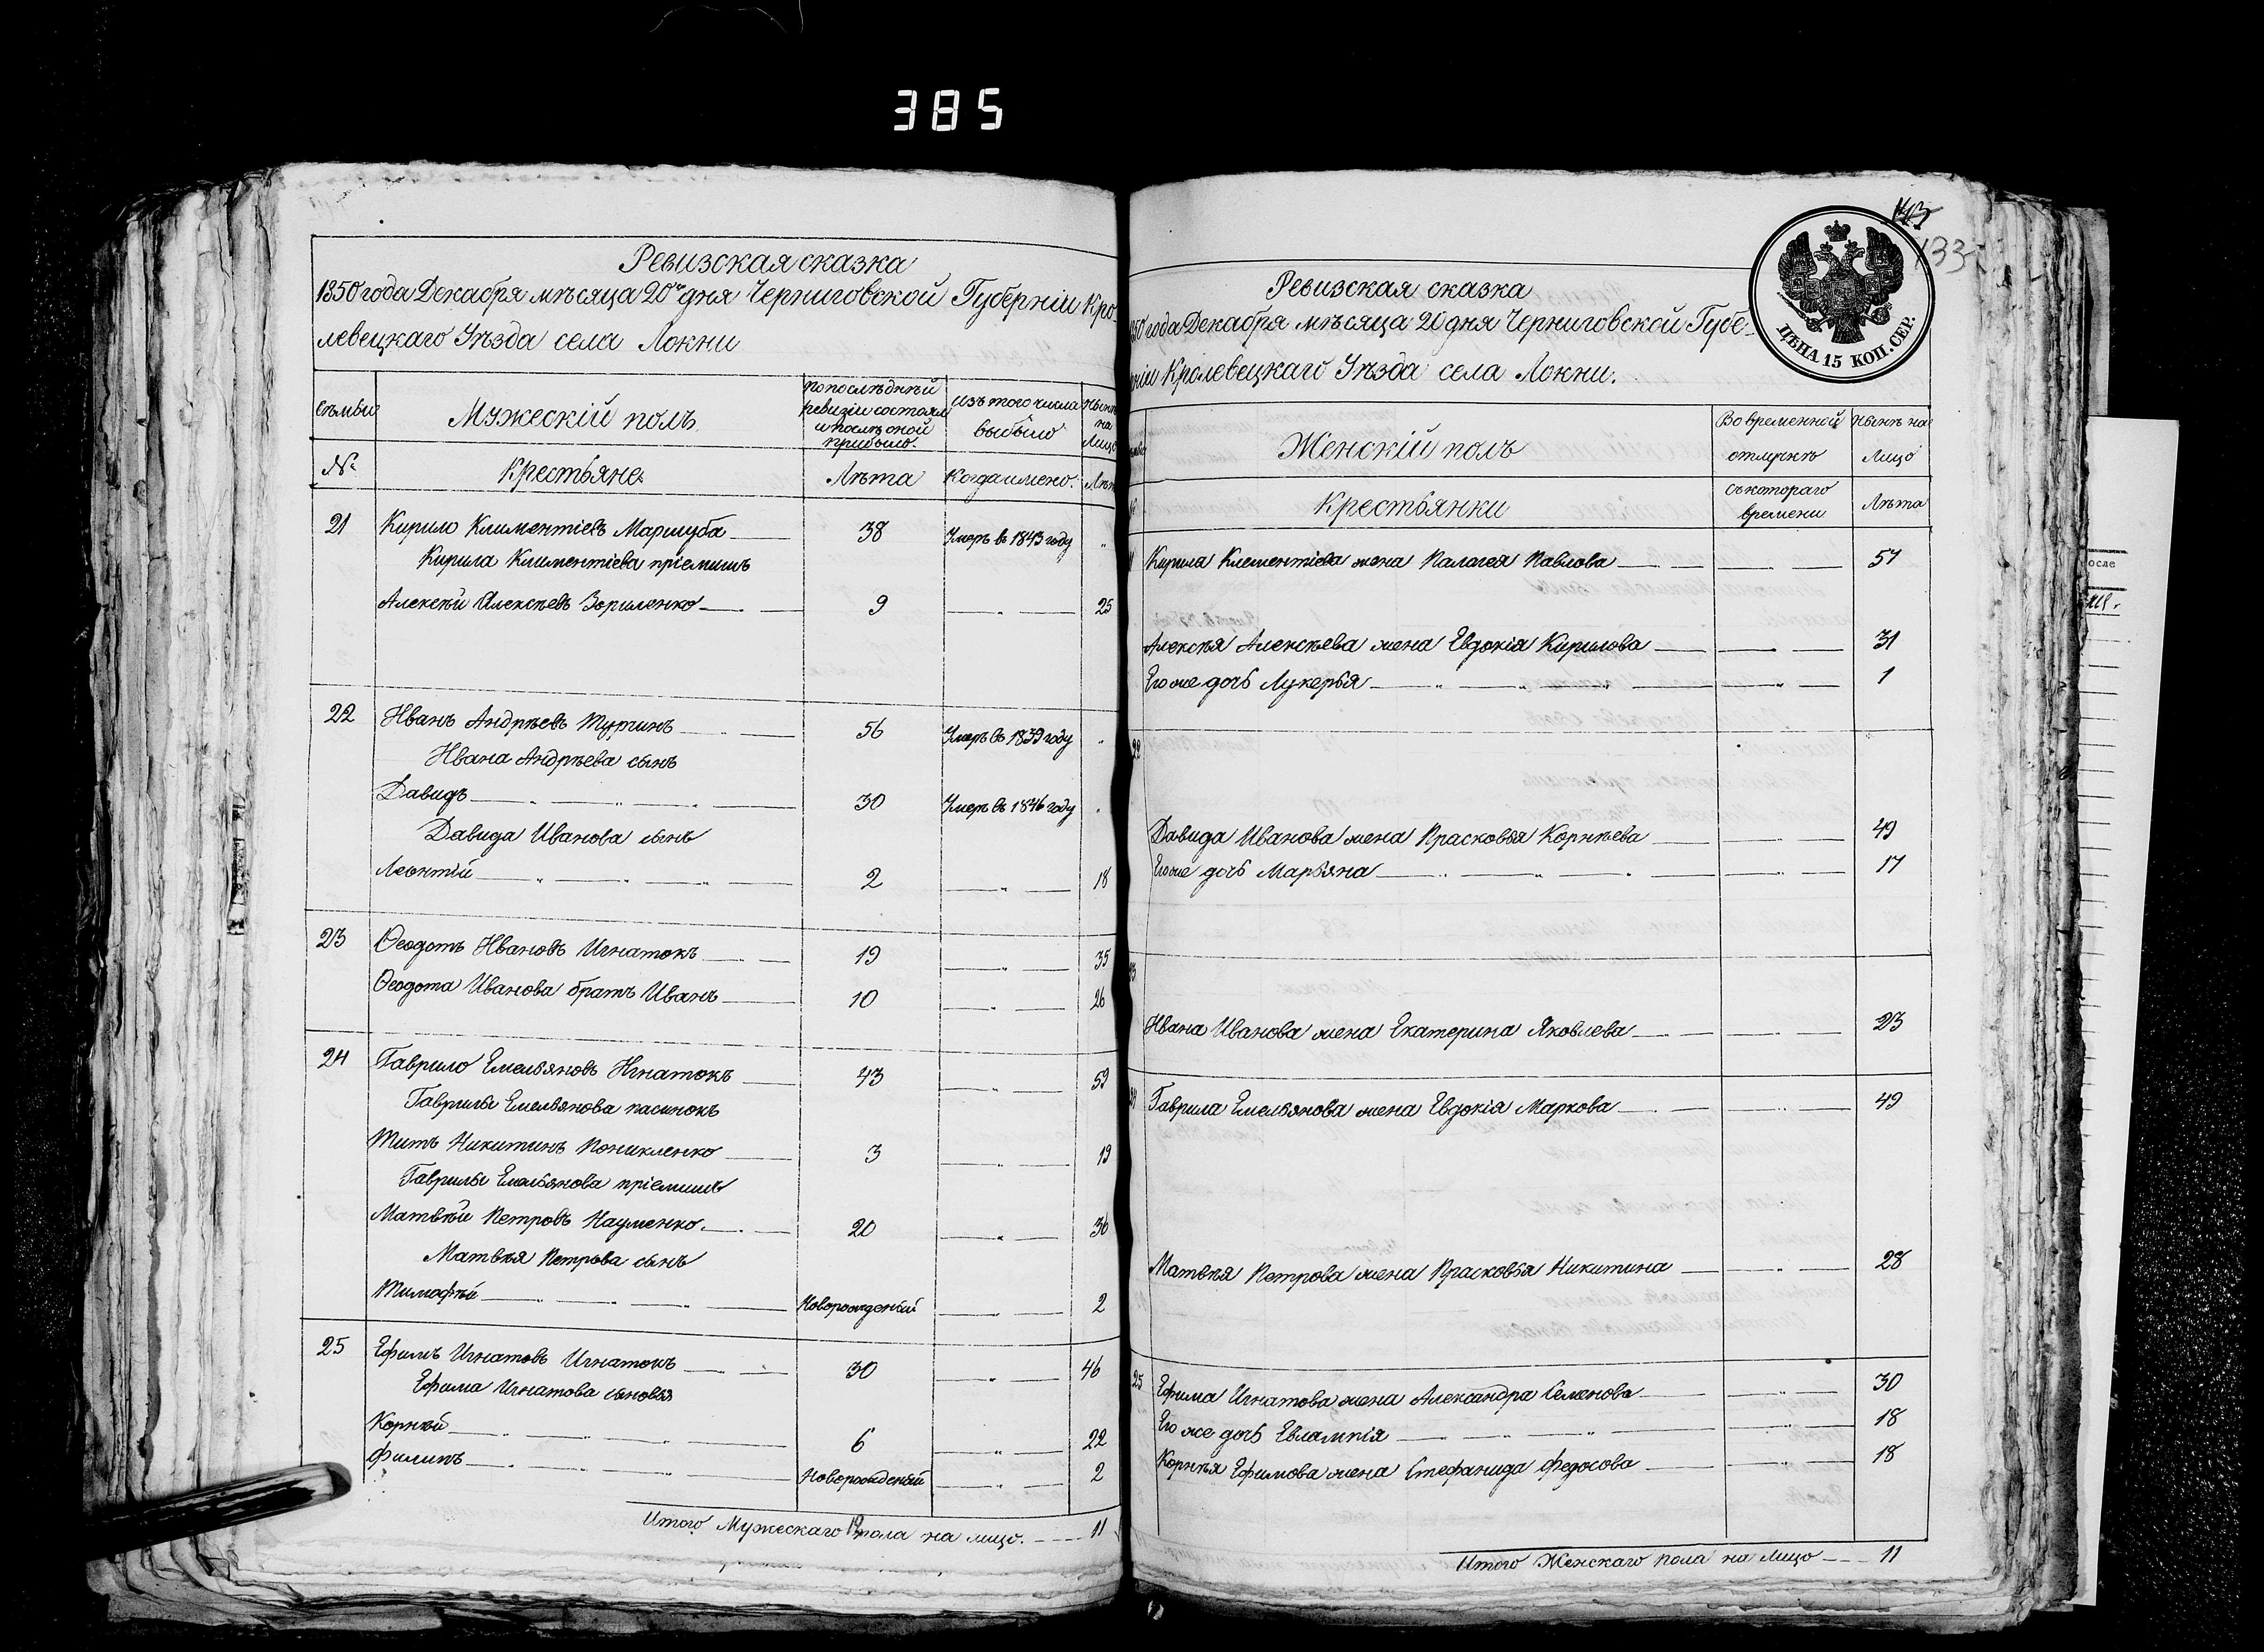 385
Ревизская сказка
1850 года Декабря мѣсяца 20го дня Черниговской Губерніи Кро-
левецкаго Уѣзда села Локни
семьи
Мужескій полъ
по послѣдней
ревизіи состояло
и послѣ оной
прибыло.
Изъ того числа
выбыло
Нынѣ
на
Лицо
№
Крестьяне
Лѣта
Когда имено.
Лѣта
21 Кирило Климентіевъ Маршуба 38 Умеръ въ 1843 году
Кирила Климентіева пріемишъ
Алексѣй Алексѣевъ Зориленко 9 25
22 Иванъ Андрѣевъ Турчинъ 56 Умеръ въ 1839 году
Ивана Андрѣева сынъ
Давидъ 30 Умеръ въ 1846 году
Давида Иванова сынъ
Леонтій 2 18
23 Ѳеодотъ Ивановъ Игнатокъ 19 35
Ѳеодота Иванова братъ Иванъ 10 26
24 Гаврило Емельяновъ Игнатокъ 43 59
Гаврилы Емельянова пасинокъ
Титъ Никитинъ Пониkленко 3 19
Гаврилы Емельянова пріемишъ
Матвѣй Петровъ Науменко. 20 36
Матвѣя Петрова сынъ
Тимофѣй Новорожденый 2
25 Ефимъ Игнатовъ Игнатокъ 30 46
Ефима Игнатова сыновья
Корнѣй 6 22
Филипъ Новорожденый 2
Итого Мужескаго пола на лицо. 11
133
ЦѢНА 15 КОП. СЕР.
Ревизская сказка
1850 года Декабря мѣсяца 20 дня Черниговской Губе-
рніи Кролевецкаго Уѣзда села Локни.
Женскій полъ
Во временной
отлучкѣ
Нынѣ на
Лицо
Крестьянки
Съ котораго
времени
Лѣта
Кирила Клементіева жена Палагея Павлова 57
Алексѣя Алексѣева жена Евдокія Кирилова 31
Его же дочь Лукерья 1
22
Давида Иванова жена Прасковья Корнѣева 49
Его же дочь Марьяна 17
23
Ивана Иванова жена Екатерина Яковлева 23
24 Гаврила Емельянова жена Евдокія Маркова 49
Матвѣя Петрова жена Прасковья Никитина 28
25 Ефима Игнатова жена Александра Семенова 30
Его же дочь Евлампія 18
Корнѣя Ефимова жена Стефанида Федосова 18
Итого Женскаго пола на Лицо 11
осле